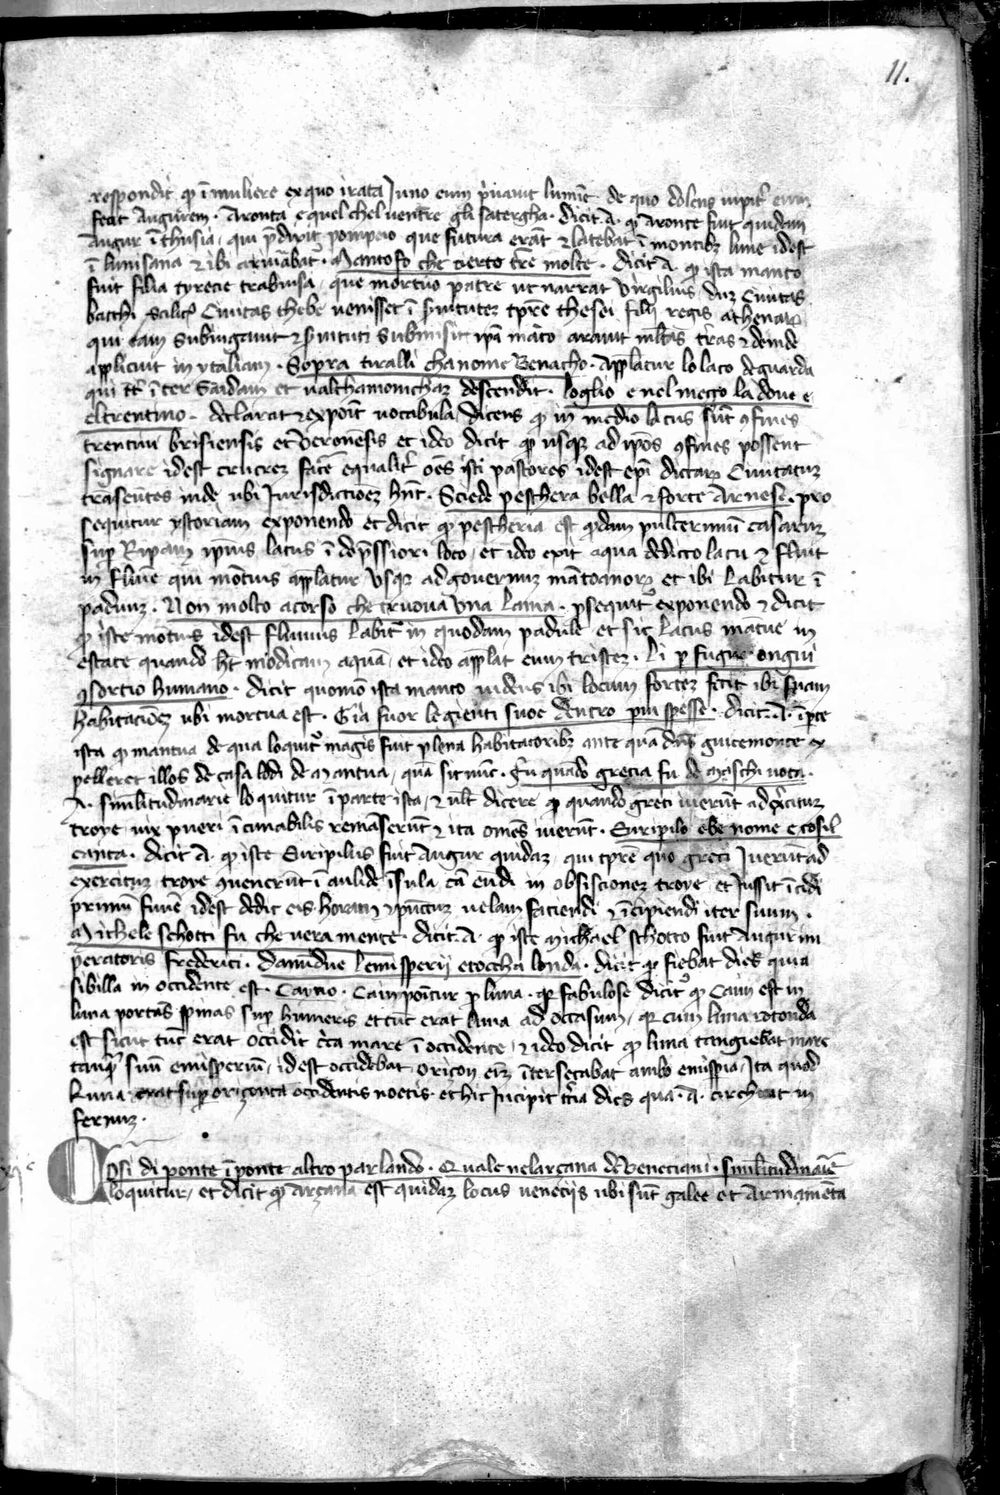 11.
respondit qͥ ī muliere ex quo irata Juno eum p̄uauit lumīe de quo dolens iupiter eum
fecit Augurem · Aronta e quel chel uentre gli satergha · dicit A· qͥ Aronte fuit quidam
Augur ī thusia, qui p̄dixit pompeio que futura erāt ⁊ latebat ī montibꝫ lune idest
ī lunisana ⁊ ibi · Manto fo che cierto tr̄e molte · dicit A· qͥ ista manto
fuit filia tyrecie, que mortuo patre ut narrat virgilius dum Ciuitas
bacchi scilicꝫ Ciuitas thebe uenisset ī suitutez tpr̄e thesei filij regis athenaꝝ
qui eam subiugauit ⁊ suituti submisit ip̄a māto multas tr̄as ⁊ deinde
applicuit in ytaliam · Sopra tiralli cha nome Benacho · Applatur lo laco de guarda
qui ī ter Saidam et ualchamonicham descendit · loglio e nel mezo la doue e
el trentino · declarat ⁊ expoīt uocabula dicens qͥ in medio lacus sūt ꝯfines
trentini brisiensis et Veronēsis et ideo dicit qͥ usqꝫ ad ip̄os ꝯfines possent
signare idest crucem facē equalitʼ oēs isti pastores idest ep̄i dictaꝝ Ciuitatum
trāseūtes inde ubi Jurisdictiōez hn̄t · Sciede peschera bella ⁊ forte Arnese · pro
sequitur ystoriam exponendo et dicit qͥ pescheria est qdam pulcerimū casarum
sup Ripam ip̄ius lacus ī dep̄ssiori loco, et ideo exit aqua de dicto lacu ⁊ fluit
in fluūe qui mōtuus applatur usqꝫ ad gouernum māтоanoꝝ et ibi labitur ī
padum · Non molto a corso che truoua una lama · ꝓsequitʳ exponendo ⁊ dicit
qͥ iste mōtuus idest fluuius labitʳ in quodam padule et sic lacus mātue in
estate quando ht modicam aquā, et ideo applat eum tristez · Li per fugire ongni
ꝯsortio humano · dicit quomō ista manto uidens ibi locum fortez fecit ibi suam
habitaciōez ubi mortua est · Gia fuor le gienti suoe dentro piu spesse · dicit A· ī pte
ista qͥ mantua de qua loquitʳ magis fuit plena habitatoribꝫ ante quā dn̄s guicemonte ex
pelleret illos de casalodi de Mantua, quā sit nūc · Fu quādo grecia fu de maschi uota ·
A· similitudinarie loquitur ī parte ista, ⁊ ult dicere qͥ quando greci iuerūt ad ex̄citum
troye uix pueri ī cunabilis remāserūt ⁊ ita omēs iuerūt · Euripilo ebe nome e cosil
canta · dicit A· qͥ iste Euripilus fuit Augur quidaꝫ, qui tpr̄e quo greci iuerūt ad
exercitum troye ꝯuenerūt ī aulide īsula cā eūdi in obsiscionem troye et Jussit īcidi
primū funē idest dedit eis horam ⁊ pūctum uelam faciendi ⁊ īcipiendi iter suum ·
Michele schotti fu che uera mente · dicit A· qͥ iste Michael schotto fuit Augur im
peratoris Frederici · Damūdue lemisperij e toccha londa · dicit qͥ fiebat dies quia
sibilla in occidente est · Caino · Cain ponitur p luna · qꝛ fabulose dicitʳ qͥ Cain est in
luna portās spinas sup humeris et tūc erat luna ad occasum, qꝛ cum luna rotonda
est sicut tūc erat occidit cͥca mare ī occidente, ⁊ ideo dicit qͥ luna tangiebat mare
suū emisperiū, idest occidebat, oriçon eīz īter secabat ambo emisp̄ia, Ita quod
Luna erat sup oriçonta occidentis noctis · et hic Incipit tͥcia dies qua A· circhrat in
fernum ·
Cosi di ponte ī ponte altro parlando · Quale nelarçana de Veneciani · similitudinarie
loquitur, et dicit qͥ arçana est quidaꝫ locus uenecijs ubi sūt galee et Armamēta